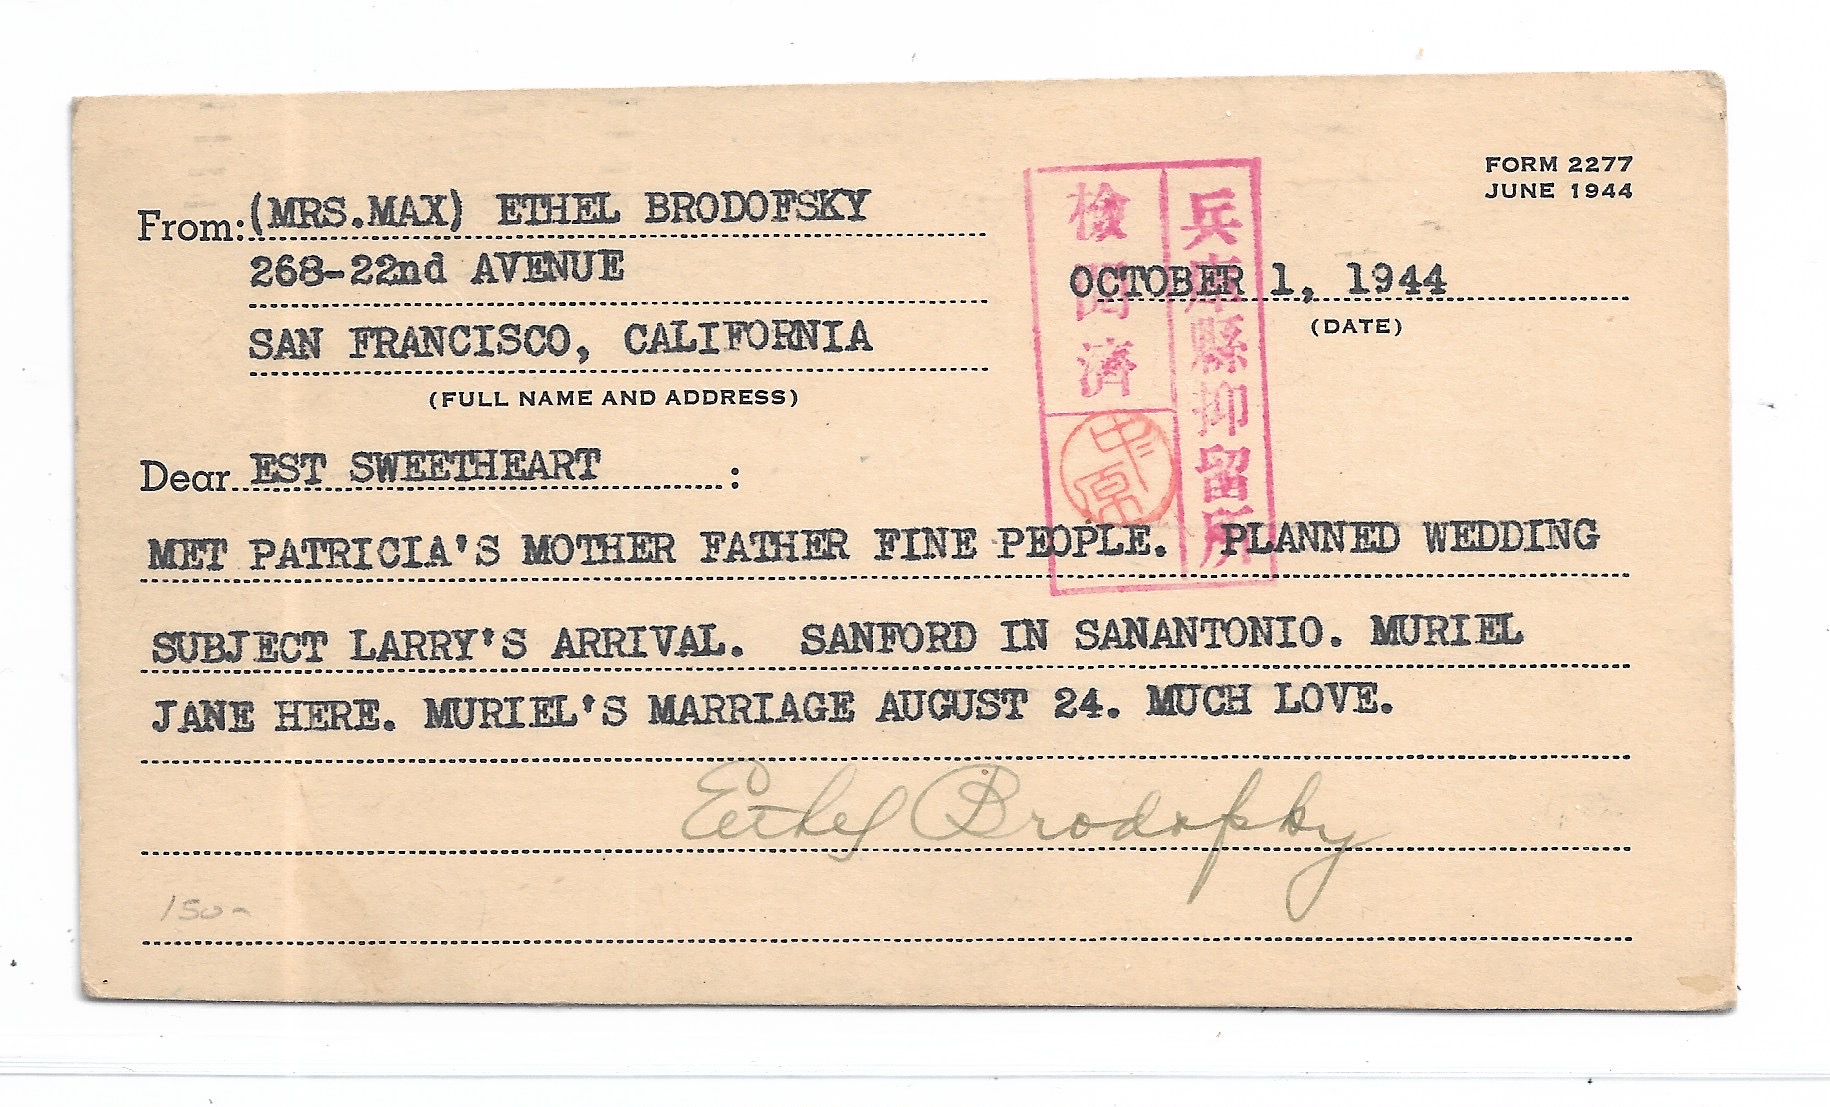 FORM 2277
JUNE 1944
From: (MRS.MAX) ETHEL BRODOFSKY
268-22nd AVENUE
SAN FRANCISCO, CALIFORNIA
(FULL NAME AND ADDRESS)
OCTOBER 1, 1944
(DATE)
兵庫縣抑留所
検閲済
中原
Dear EST SWEETHEART :
MET PATRICIA'S MOTHER FATHER FINE PEOPLE. PLANNED WEDDING
SUBJECT LARRY'S ARRIVAL. SANFORD IN SANANTONIO. MURIEL
JANE HERE. MURIEL'S MARRIAGE AUGUST 24. MUCH LOVE.
Ethel Brodofsky
150-